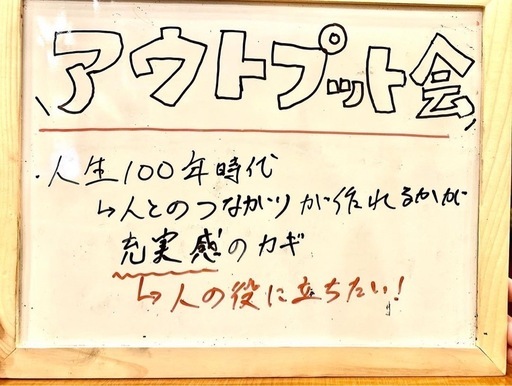 アウトプット会
・人生100年時代
↳人とのつながりが作れるかが
充実感のカギ
↳人の役に立ちたい!